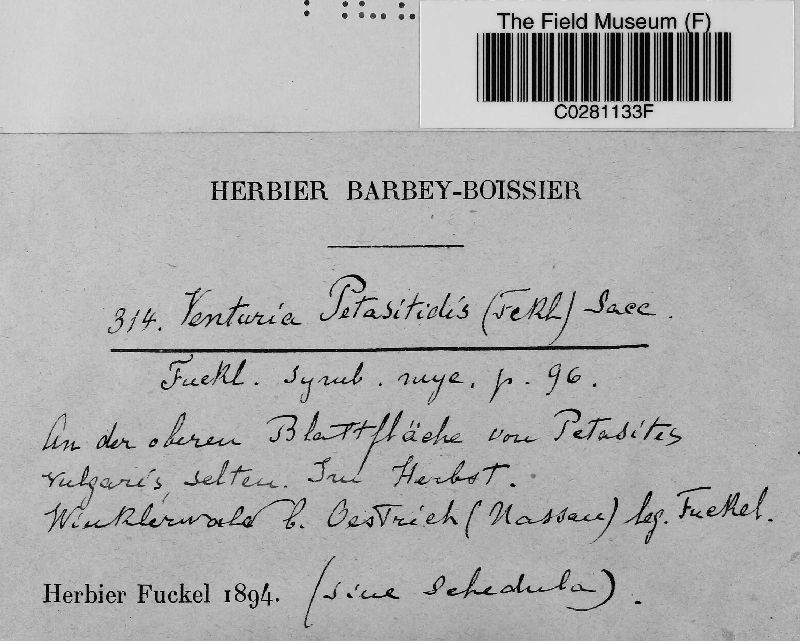 The Field Museum (F)
C0281133F
HERBIER BARBEY-BOISSIER
314. Venturia Petasitidis (Fckl) Sacc.
Fuckl. Symb. myc. p. 96.
An der oberen Blattfläche von Petasites
vulgaris, selten. Im Herbst.
Winklerwald b. Oestrich (Nassau) leg. Fuckel.
Herbier Fuckel 1894. (sine schedula).